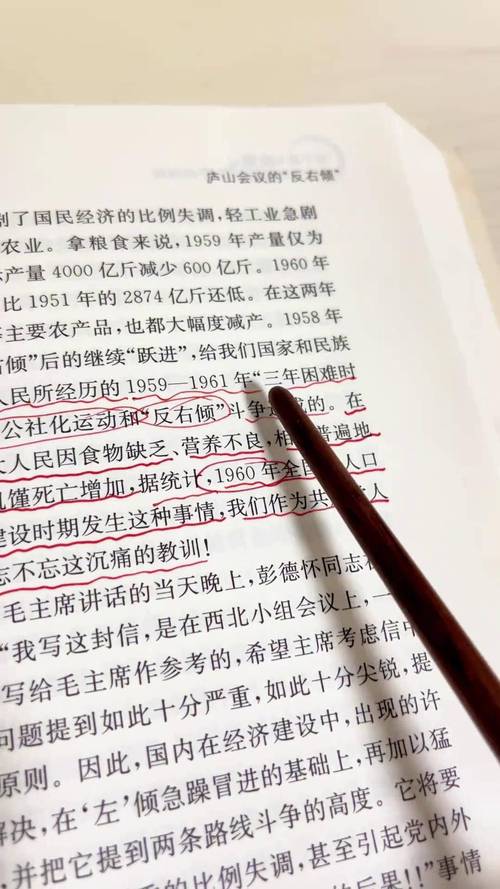 庐山会议的“反右倾”
了国民经济的比例失调，轻工业急剧
农业。拿粮食来说，1959 年产量仅为
产量 4000 亿斤减少 600 亿斤。1960 年
比 1951 年的 2874 亿斤还低。在这两年
主要农产品，也都大幅度减产。1958 年
倾”后的继续“跃进”，给我们国家和民族
人民所经历的 1959—1961 年“三年困难时
公社化运动和“反右倾”斗争 的。在
人民因食物缺乏、营养不良，相 普遍地
饿死亡增加，据统计，1960 年全国 人口
建设时期发生这种事情，我们作为共 人
忘不忘这沉痛的教训！
毛主席讲话的当天晚上，彭德怀同志在
“我写这封信，是在西北小组会议上，一
写给毛主席作参考的，希望主席考虑信中
问题提到如此十分严重，如此十分尖锐，提
原则。因此，国内在经济建设中，出现的许
解决，在‘左’倾急躁冒进的基础上，再加以猛
并把它提到两条路线斗争的高度。它将要
的比例失调，甚至引起党内外
后果!!”事情